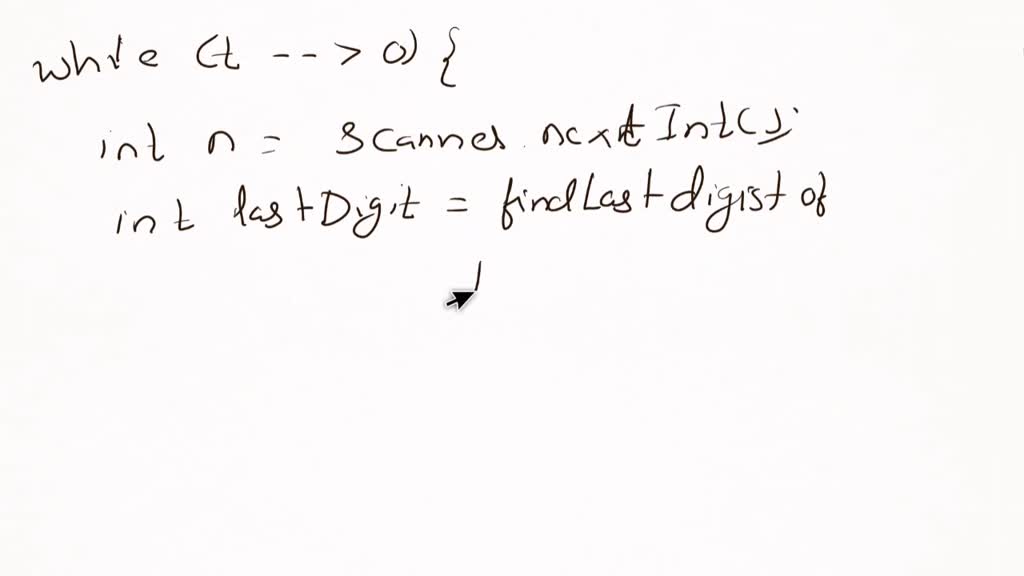 while (t --> 0) {
int n = Scanner.nextInt();
int lastDigit = findLastdigist of